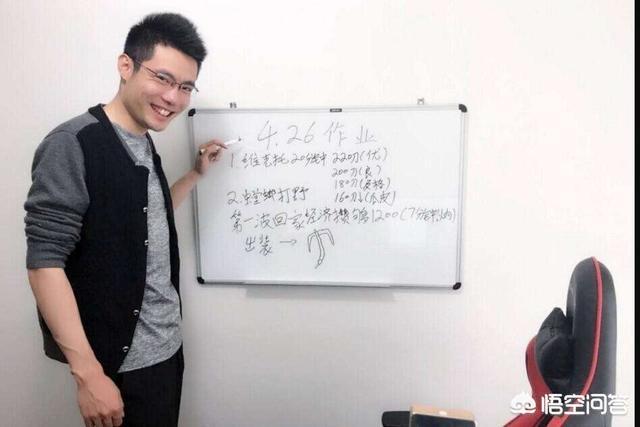 4.26作业
1.维克托20分钟 220刀(优)
200刀(良)
180刀(英格)
160刀↓(应皮)
2.螳螂打野
第一波回家经济攒够1200(7分钟内)
出装 →
悟空问答